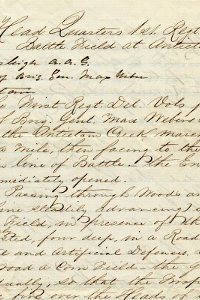 Head Quarters 1st Regt
Battle Field at Antiet
A.A.G.
Brig. Gen. Max Weber
The First Regt Del. Vols f
of Brig. Genl. Max Weber's
the Antietam Creek march
a Mile, then facing to the
in line of Battle. The En
immediately opened.
Passing through Woods an
steadily advancing
Field, in presence of th
four deep, in a Road
and artificial Defences, a
a Corn Field. the g
so that the
over the Heads of